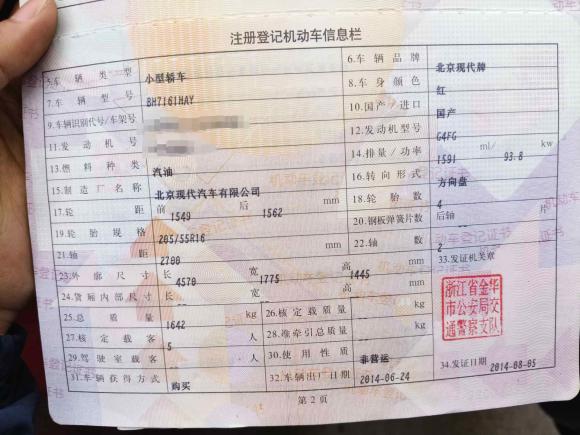 注册登记机动车信息栏
5.车辆类型 小型轿车 6.车辆品牌 北京现代牌
7.车辆型号 BH7161HAY 8.车身颜色 红
9.车辆识别代号/车架号 10.国产/进口 国产
11.发动机号 12.发动机型号 G4FG
13.燃料种类 汽油 14.排量/功率 1591 ml/ 93.8 kw
15.制造厂名称 北京现代汽车有限公司 16.转向形式 方向盘
17.轮距 前 1549 后 1562 mm 18.轮胎数 4
19.轮胎规格 205/55R16 20.钢板弹簧片数 后轴 片
21.轴距 2700 mm 22.轴数 2
23.外廓尺寸 长 4570 宽 1775 高 1445 mm 33.发证机关章
24.货厢内部尺寸 长 宽 高 mm
25.总质量 1642 kg 26.核定载质量 kg
27.核定载客 5 人 28.准牵引总质量 kg
29.驾驶室载客 人 30.使用性质 非营运
31.车辆获得方式 购买 32.车辆出厂日期 2014-06-24 34.发证日期 2014-08-05
浙江省金华
市公安局交
通警察支队
第2页